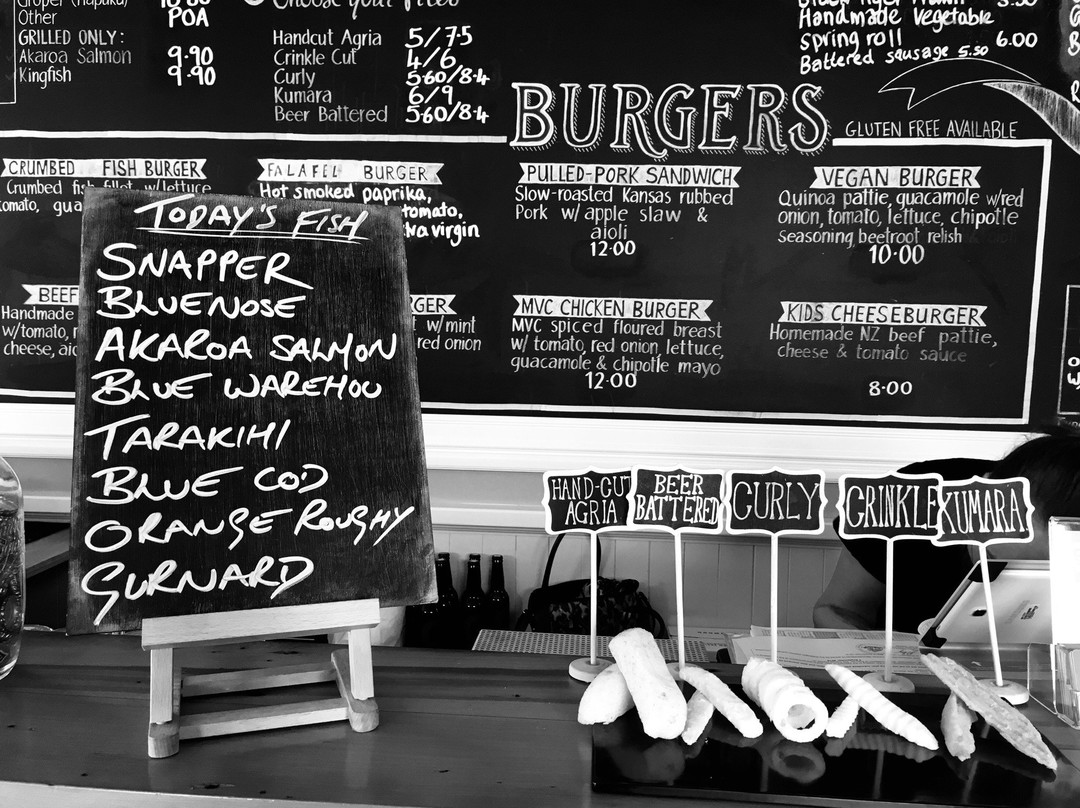 Other POA
GRILLED ONLY:
Akaroa Salmon 9.90
Kingfish 9.90
Choose your
Handcut Agria 5/7.5
Crinkle Cut 4/6
Curly 5.60/8.4
Kumara 6/9
Beer Battered 5.60/8.4
Handmade Vegetable
spring roll 6.00
Battered sausage 5.50
BURGERS
GLUTEN FREE AVAILABLE
CRUMBED FISH BURGER
Crumbed fish fillet w/lettuce
FALAFEL BURGER
Hot smoked paprika,
tomato,
virgin
PULLED-PORK SANDWICH
Slow-roasted Kansas rubbed
Pork w/ apple slaw &
aioli
12.00
VEGAN BURGER
Quinoa pattie, guacamole w/red
onion, tomato, lettuce, chipotle
seasoning beetroot relish
10.00
BEEF
Handmade
w/tomato,
cheese,
w/mint
red onion
MVC CHICKEN BURGER
MVC spiced floured breast
w/ tomato, red onion, lettuce,
guacamole & chipotle mayo
12.00
KIDS CHEESEBURGER
Homemade NZ beef pattie,
cheese & tomato sauce
8.00
TODAY'S FISH
SNAPPER
BLUENOSE
AKAROA SALMON
BLUE WAREHOU
TARAKIHI
BLUE COD
ORANGE ROUGHY
GURNARD
HAND-CUT
AGRIA
BEER
BATTERED
CURLY
CRINKLE
KUMARA